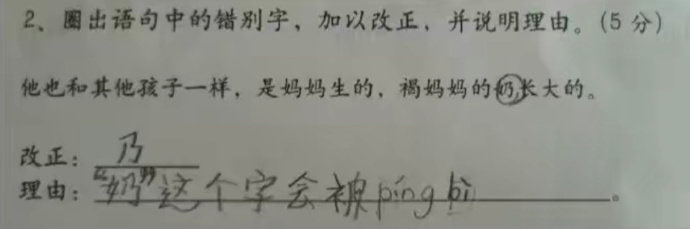 2、圈出语句中的错别字，加以改正，并说明理由。(5分)
他也和其他孩子一样，是妈妈生的，褐妈妈的奶长大的。
改正：乃
理由：“奶”这个字会被píng bì。